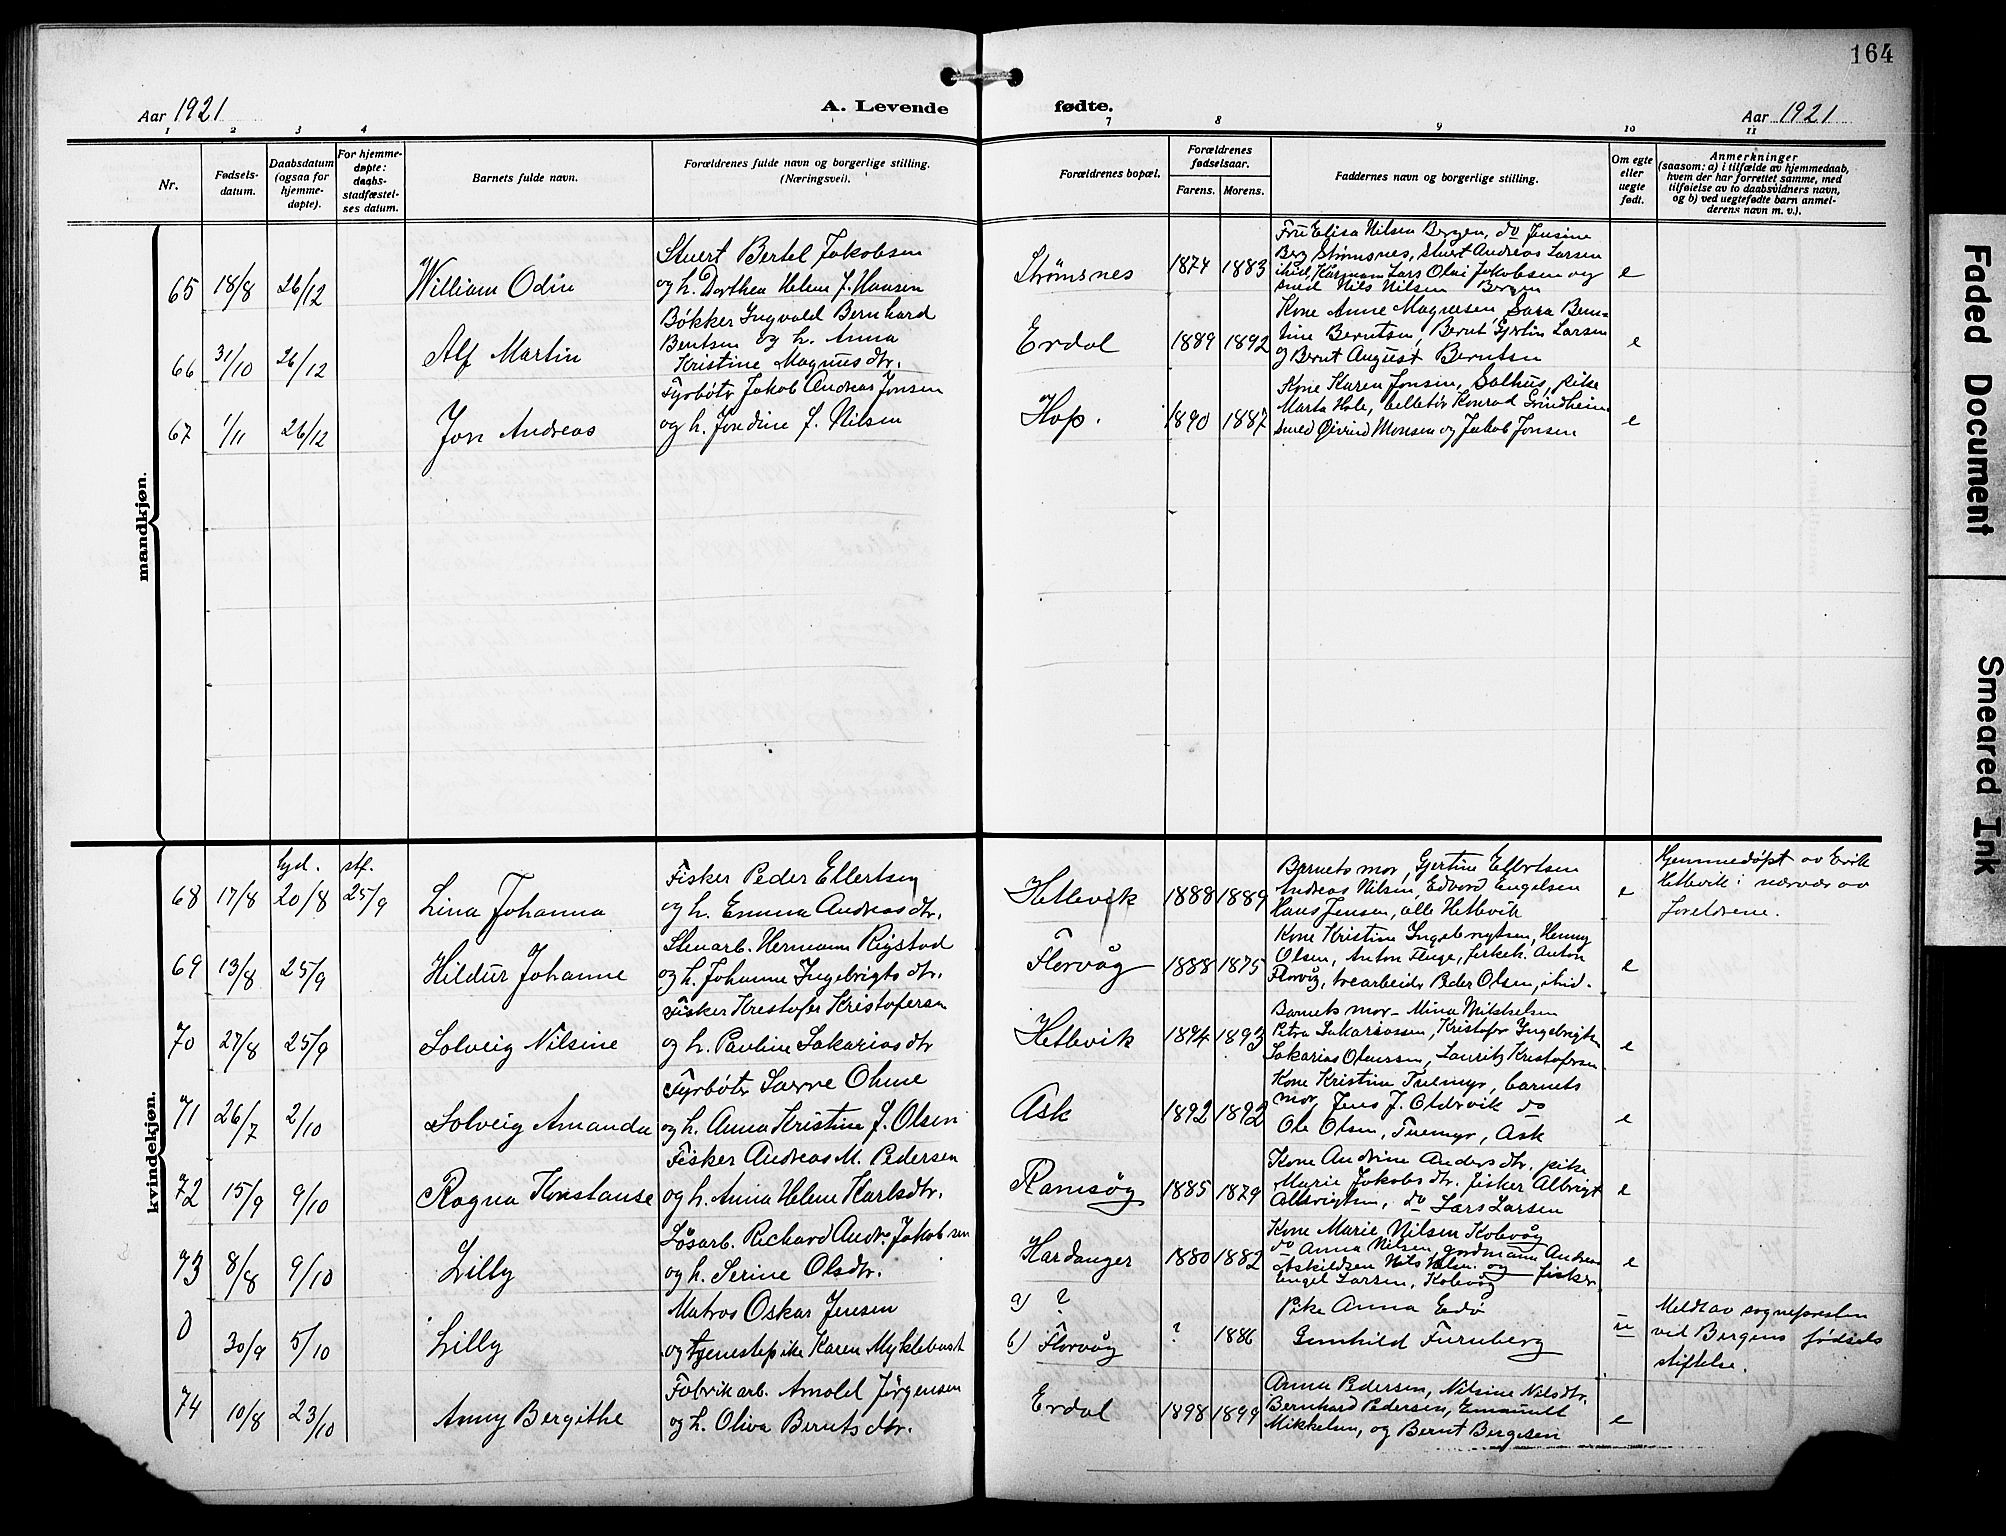 164
Aar 1921
A. Levende fødte.
Aar 1921
1 2 3 4 7 8 9 10 11
Nr.
Fødsels-
datum.
Daabsdatum
(ogsaa for
hjemme-
døpte).
For hjemme-
døpte:
daabs-
stadfæstel-
ses datum.
Barnets fulde navn.
Forældrenes fulde navn og borgerlige stilling.
(Næringsvei).
Forældrenes bopæl.
Forældrenes
fødselsaar.
Farens. Morens.
Faddernes navn og borgerlige stilling.
Om egte
eller
uegte
født.
Anmerkninger
(saasom: a) i tilfælde av hjemmedaab,
hvem der har forrettet samme, med
tilføielse av to daabsvidners navn,
og b) ved uegtefødte barn anmel-
derens navn m. v.).
mandkjøn.
65 18/8 26/12 William Odin
Stuert Bertel Jakobsen
og h. Dorthea Helene f. Hansen
Strømsnes 1874 1883
Fru Elisa Nilsen Bergen, do Jensine
Berg Strømsnes, Stuert Andreas Larsen
Lars Olai Jakobsen og
smed Nils Nilsen Bergen
e
66 31/10 26/12 Alf Martin
Bøkker Ingvald Bernhard
Bentsen og h. Anna
Kristine Magnusdtr.
Erdal 1889 1892
Kone Anne Magnesen, Sara Bern-
tine Berntsen, Bernt Gjertin Larsen
og Bernt August Berntsen
e
67 1/11 26/12 Jon Andreas
Fyrbøter Jakob Andreas Jonsen
og h. Jondine f. Nilsen
Hop. 1890 1887
Kone Karen Jonsen, Salhus, pike
Marta Hole, Konrad Grindheim
smed Øivind Monsen og Jakob Jonsen
e
kvindekjøn.
hjd. stf.
68 17/8 20/8 25/9 Lina Johanna
Fisker Peder Ellertsen
og h. Emma Andreasdtr.
Hetlevik 1888 1889
Barnets mor, Gjertine Ellertsen
Andreas Nilsen, Edvard Engelsen
Hans Jensen, alle Hetlevik
e
Hjemmedøpt av Erik
Hetlevik i nærvær av
foreldrene.
69 13/8 25/9 Hildur Johanne
Stenarb. Hermann Rigstad
og h. Johanne Ingebrigtsdtr.
Florvåg 1888 1875
Kone Kristine Ingebrigtsen, Henny
Olsen, Anton Fluge, fiskeh. Anton
Florvåg, trearbeider Peder Olsen, ibid.
e
70 27/8 25/9 Solveig Nilsine
Fisker Kristofer Kristofersen
og h. Pauline Sakariasdtr
Hetlevik 1894 1893
Barnets mor - Mina Mikkelsen
Petra Sakariassen, Kristofer Ingebrigtsen
Sakarias Olaussen, Lauritz Kristofersen
e
71 26/7 2/10 Solveig Amanda
Fyrbøter Særre Ohme
og h. Anna Kristine f. Olsen
Ask 1892 1892
Kone Kristine Tuemyr, barnets
mor, Jens J. Oldervik do
Ole Olsen, Tuemyr, Ask
e
72 15/9 9/10 Ragna Konstanse
Fisker Andreas M. Pedersen
og h. Anna Helene Karlsdtr.
Ramsøy 1885 1879
Kone Andrine Andersdtr. pike
Marie Jakobsdtr. fisker Albrigt
Albrigtsen, do Lars Larsen
e
73 8/8 9/10 Lilly
Løsarb. Richard Andrs Jakobsen
og h. Serine Olsdtr.
Hardanger 1880 1882
Kone Marie Nilsen Kolvåg
do Anna Nilsen, gardmann Andreas
Askildsen Nils Nilsen og fisker
Engel Larsen, Kolvåg
e
0 30/9 5/10 Lilly
Matros Oskar Jensen
og tjenestepike Karen Myklebust
a) ?
b) Florvåg ? 1886
Pike Anna Erdø
Gunhild Furuberg
u
Meldt av sognepresten
ved Bergens fødsels
stiftelse.
74 10/8 23/10 Anny Bergithe
Fabrikarb. Arnold Jørgensen
og h. Oliva Berntsdtr.
Erdal 1898 1899
Anna Pedersen, Nilsine Nilsdtr.
Bernhard Pedersen, Emanuel
Mikkelsen, og Bernt Bergesen
e
Faded Document
Smeared Ink